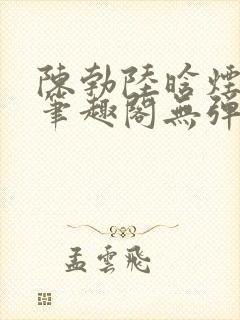 陳勃陸晗煙
筆趣閣無彈
孟雲飛